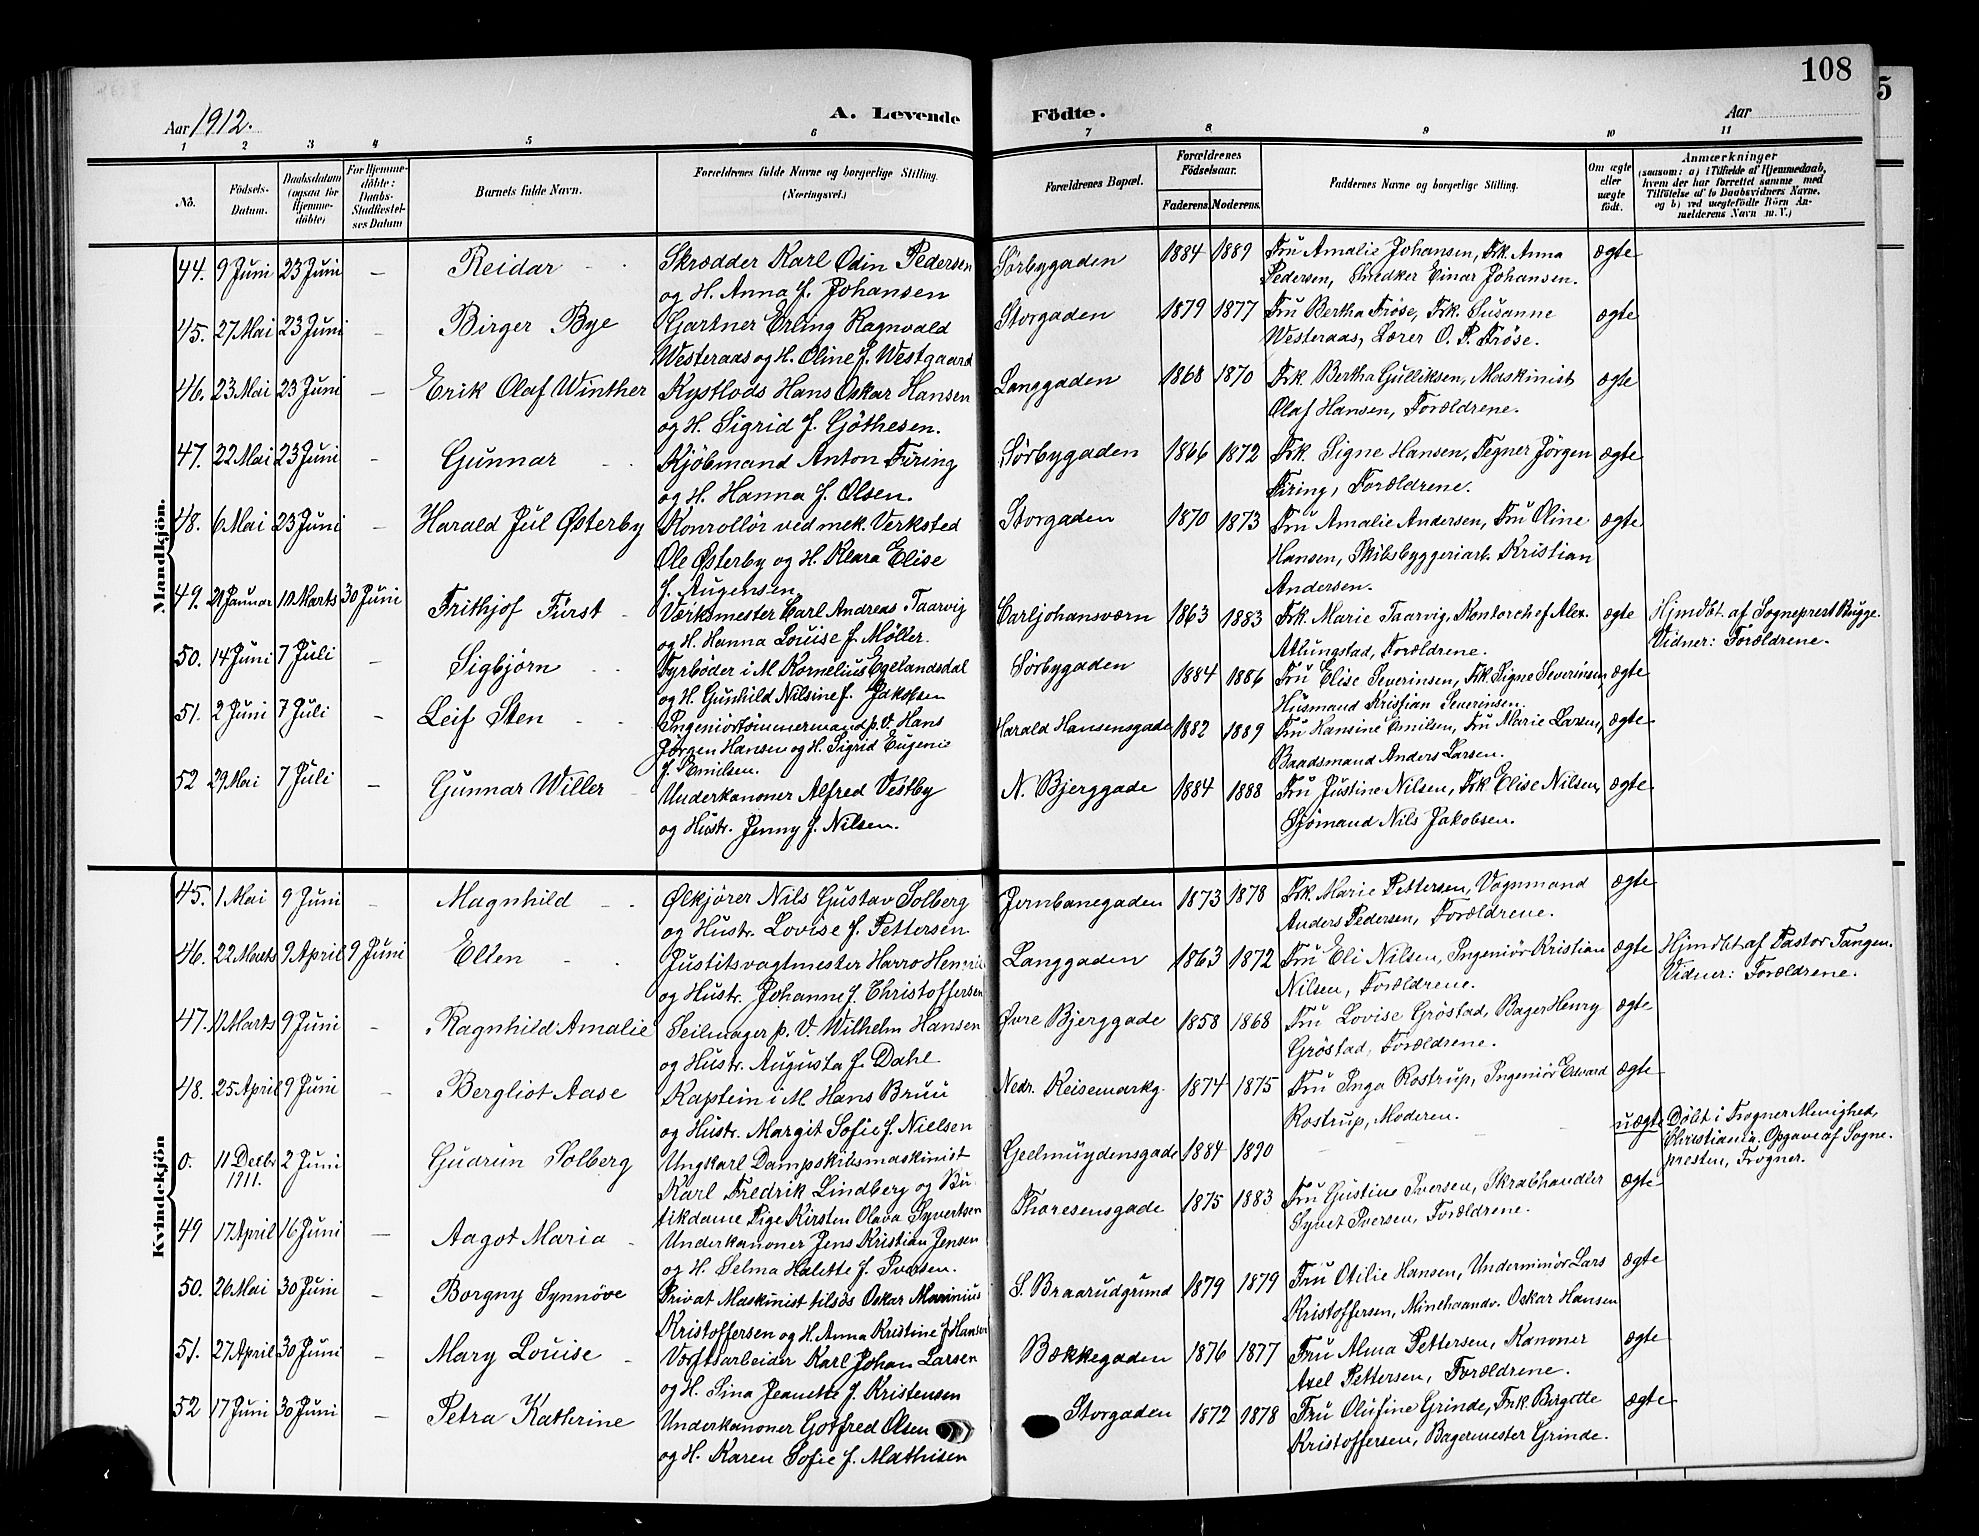 108
5
Aar 1912.
A. Levende Födte.
Aar
1 2 3 4 5 6 7 8 9 10 11
No.
Födsels-Datum.
Daabsdatum (ogsaa för Hjemme-döbte)
For Hjemme-döbte: Daabs-Stadfæstel-ses Datum
Barnets fulde Navn.
Forældrenes fulde Navne og borgerlige Stilling. (Næringsvei.)
Forældrenes Bopæl.
Forældrenes Födselsaar.
Faderens. Moderens.
Faddernes Navne og borgerlige Stilling.
Om ægte eller uægte født.
Anmærkninger
(saasom: a) i Tilfælde af Hjemmedaab,
hvem der har forrettet samme med
Tilføielse af to Daabsvidners Navne.
og b) ved uægtefödte Börn An-
melderens Navn m. V.)
Mandkjön.
44. 9 Juni 23 Juni – Reidar Skrædder Karl Odin Pedersen Sørbygaden 1884 1889 Fru Amalie Johansen, Frk. Anna ægte
og H. Anna f. Johansen Pedersen, Snedker Einar Johansen.
45. 27 Mai 23 Juni – Birger Bye Gartner Erling Ragnvald Storgaden 1879 1877 Fru Bertha Frøse, Frk. Susanne ægte
Westeraas og H. Oline f. Westgaard Westeraas, Lærer O. P. Frøse.
46. 23 Mai 23 Juni – Erik Olaf Winther Kystlods Hans Oskar Hansen Langgaden 1868 1870 Frk. Bertha Gulliksen, Maskinist ægte
og H. Sigrid f. Göthesen. Olaf Hansen, Forældrene.
47. 22 Mai 23 Juni – Gunnar Kjöbmand Anton Firing Sørbygaden 1866 1872 Frk. Signe Hansen, Tegner Jörgen ægte
og H. Hanna f. Olsen. Firing, Forældrene.
48. 6 Mai 23 Juni – Harald Jul Østerby Konrollör ved mek. Verksted Storgaden 1870 1873 Fru Amalie Andersen, Fru Oline ægte
Ole Østerby og H. Klara Elise Hansen, Skibsbyggeriarb. Kristian
f. Augensen Andersen.
49. 21 Januar 10 Marts 30 Juni Frithjof Fürst Værksmester Carl Andreas Taarvig Carljohansværn 1863 1883 Frk. Marie Taarvig, Kontorchef Alex. ægte Hjmdbt. af Sogneprest Bugge.
og H. Hanna Louise f. Möller. Atlungstad, Forældrene. Vidner: Forældrene.
50. 14 Juni 7 Juli – Sigbjörn Fyrböder i M. Kornelius Egelandsdal Sørbygaden 1884 1886 Fru Elise Severinsen, Frk. Signe Severinsen, ægte
og H. Gunhild Nilsine f. Jakobsen Husmand Kristian Severinsen.
51. 2 Juni 7 Juli – Leif Sten Ingeniörtömmermand p. V. Hans Harald Hansensgade 1882 1889 Fru Hansine Emilsen, Fru Marie Larsen, ægte
Jørgen Hansen og H. Sigrid Eugenie Baadsmand Anders Larsen.
f. Emilsen.
52 29 Mai 7 Juli – Gunnar Willer Underkanoner Alfred Vestby N. Bjerggade 1884 1888 Fru Justine Nilsen, Frk. Elise Nilsen, ægte
og Hustr. Jenny f. Nilsen. Sjømand Nils Jakobsen.
Kvindekjön
45. 1 Mai 9 Juni – Magnhild Ølkjörer Nils Gustav Solberg Jernbanegaden 1873 1878 Frk. Marie Pettersen, Vognmand ægte
og Hustr. Lovise f. Pettersen Anders Pedersen, Forældrene.
46. 22 Marts 9 April 9 Juni Ellen Justitsvagtmester Harro Langgaden 1863 1872 Fru Eli Nilsen, Ingeniör Kristian ægte Hjmdbt. af Pastor Tangen.
og Hustr. Johanne f. Christoffersen Nilsen, Forældrene. Vidner: Forældrene.
47. 11 Marts 9 Juni – Ragnhild Amalie Seilmager p. V. Wilhelm Hansen Øvre Bjerggade 1858 1868 Fru Lovise Gröstad, Bager Henry ægte
og Hustr. Augusta f. Dahl Gröstad, Forældrene.
48. 25 April 9 Juni – Bergliot Aase Kaptein i M. Hans Bruu Nedr. Keisemarkg. 1874 1875 Fru Inga Rostrup, Ingeniör Edvard ægte
og Hustr. Margit Sofie f. Nielsen Rostrup, Moderen.
0. 11 Decbr. 1911. 2 Juni Gudrun Solberg Ungkarl Dampskibsmaskinist Geelmuydensgade 1884 1890 – uægte Döbt i Frogner Menighed,
Karl Fredrik Lindberg og Bu- Christiania. Opgave af Sogne-
tikdame Pige Kirsten Olava Syvertsen presten, Frogner.
49 17 April 16 Juni – Aagot Maria Underkanoner Jens Kristian Jensen Thoresensgade 1875 1883 Fru Gustine Iversen, Skrabhandler ægte
og H. Selma Halette f. Iversen. Syvet Iversen, Forældrene.
50. 26 Mai 30 Juni – Borgny Synnöve Privat Maskinist tilsös Oskar Marinius S. Braarudgrund 1879 1879 Fru Otilie Hansen, Underminör Lars ægte
Kristoffersen og H. Anna Kristine f. Hansen Kristoffersen, Minehaandv. Oskar Hansen
51. 27 April 30 Juni – Mary Louise Værftsarbeider Karl Johan Larsen Bækkegaden 1876 1877 Fru Alma Pettersen, Kanoner ægte
og H. Sina Jeanette f. Kristensen Axel Pettersen, Forældrene.
52 17 Juni 30 Juni – Petra Kathrine Underkanoner Gotfred Olsen Storgaden 1872 1878 Fru Olufine Grinde, Frk. Birgitte ægte
og H. Karen Sofie f. Mathisen Kristoffersen, Bagermester Grinde.